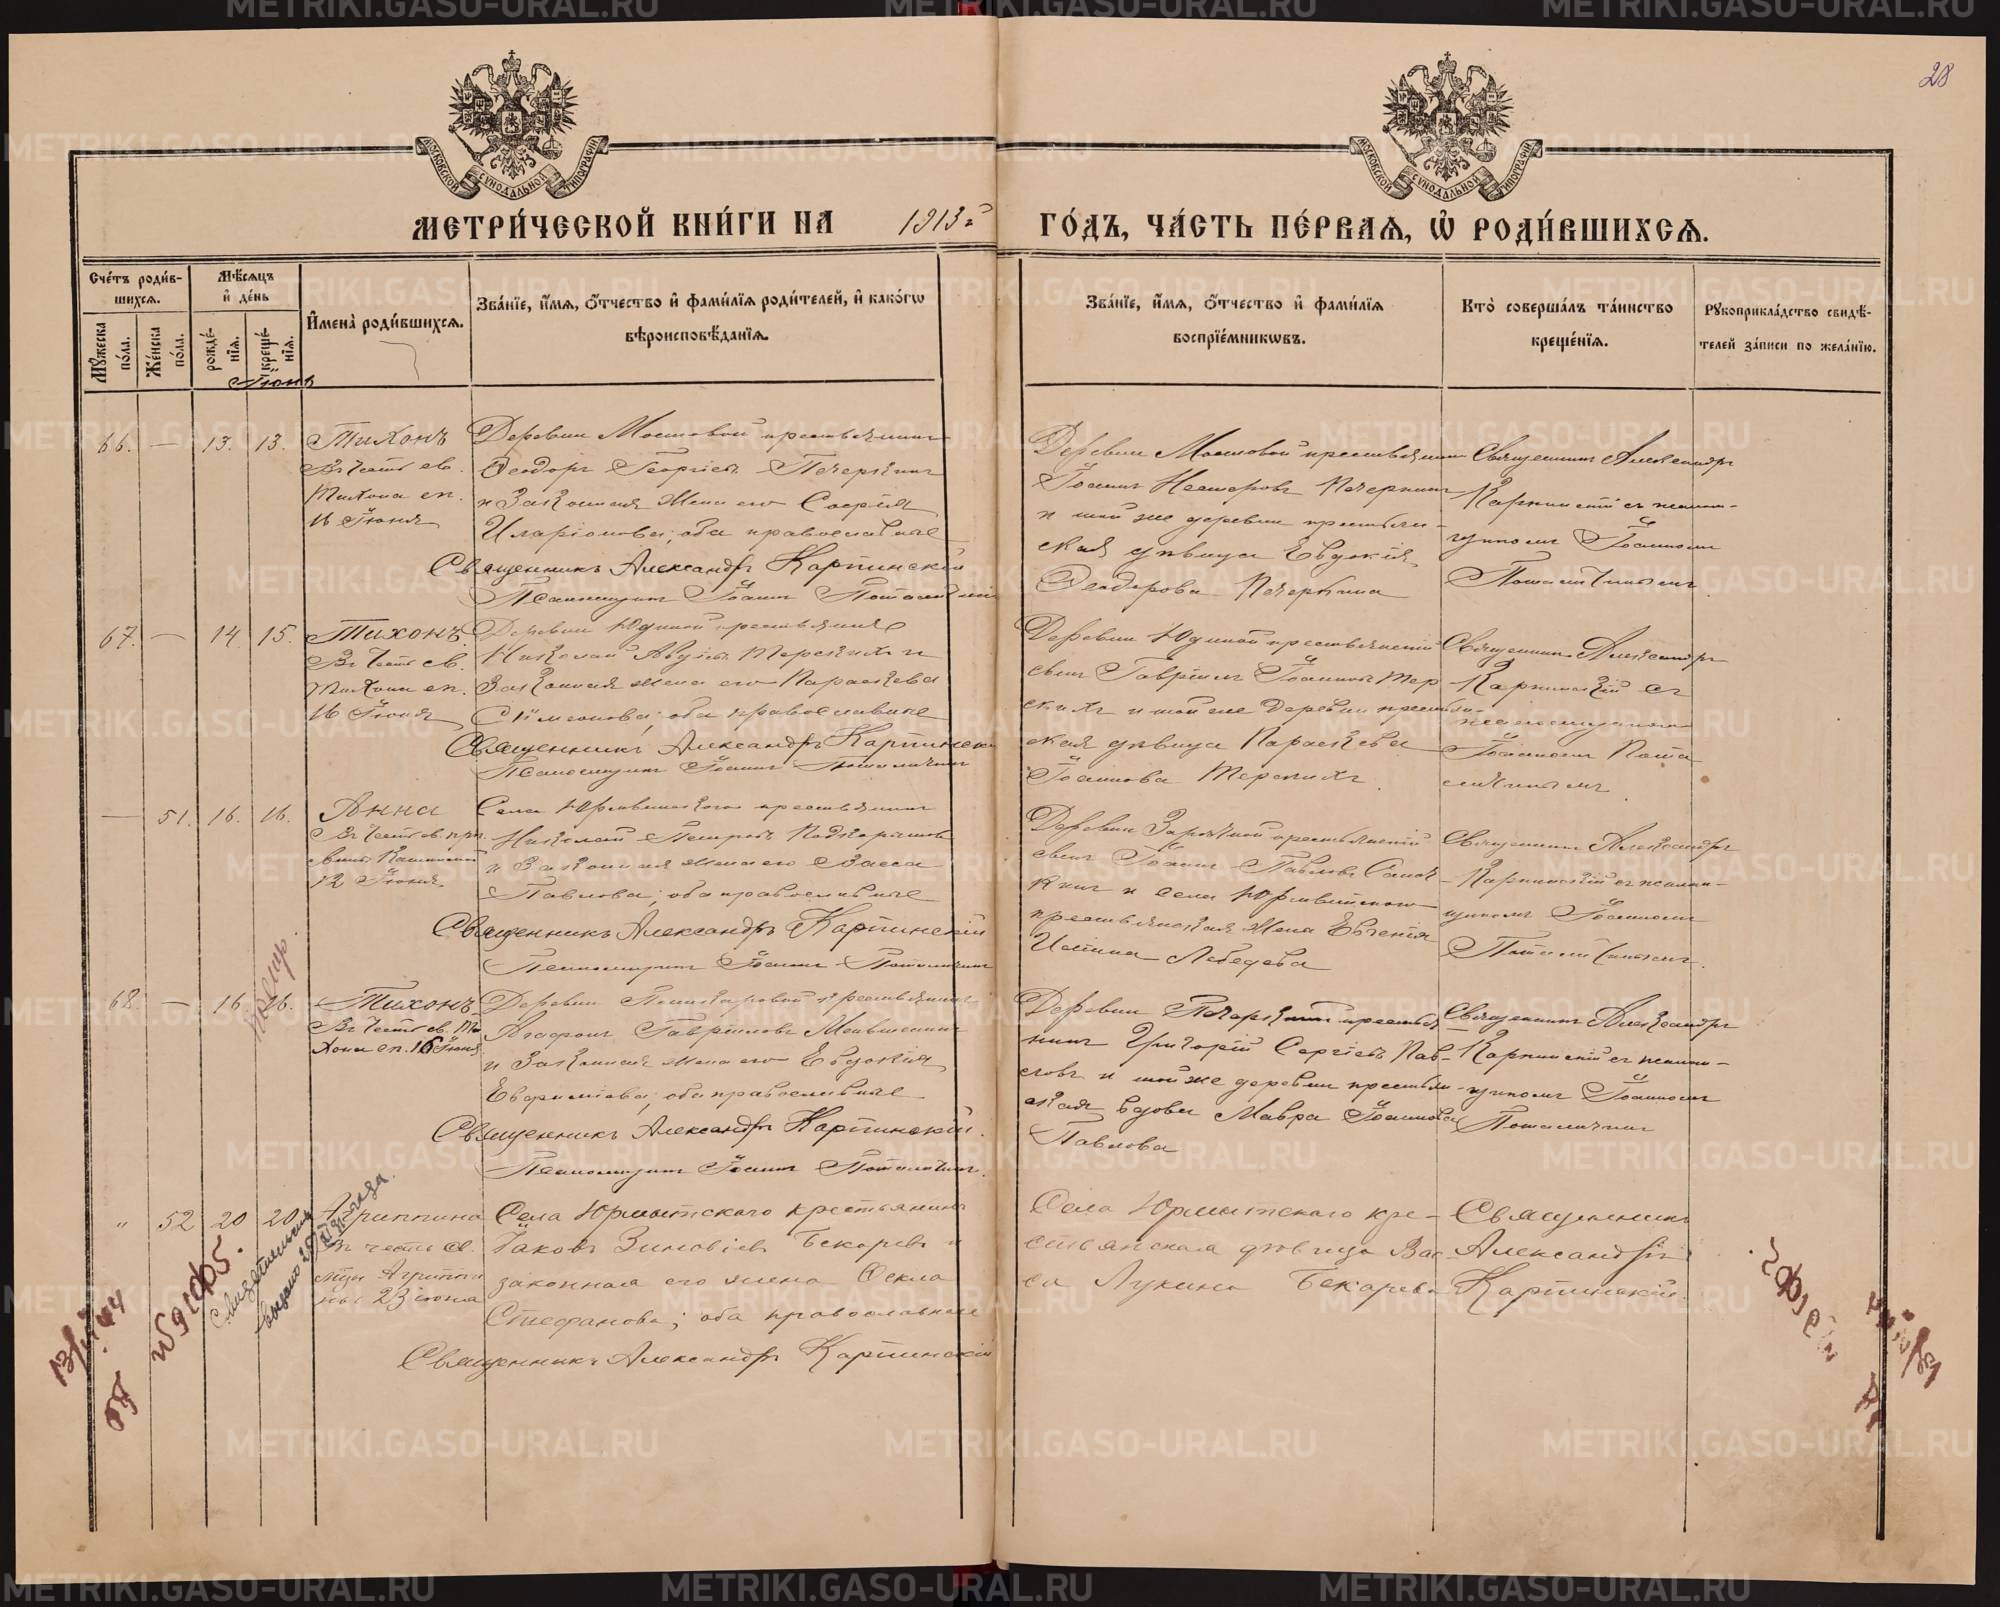 28
МОСКОВСКОЙ СѴНОДАЛЬНОЙ ТИПОГРАФІИ
МОСКОВСКОЙ СѴНОДАЛЬНОЙ ТИПОГРАФІИ
МЕТРИ́ЧЕСКОЙ КНИ́ГИ НА 1913 г. ГО́ДЪ, ЧА́СТЬ ПЕ́РВАЯ, Ѡ҆ РОДИ́ВШИХСЯ.
Сче́тъ роди́в-
шихся.
Мꙋ́жеска по́ла.
Же́нска по́ла.
Мѣ́сяцъ
и҆ де́нь
рожде́-нїя.
креще́-нїя.
И҆мена̀ роди́вшихся.
Зва́нїе, и҆́мя, ѻ҆́тчество и҆ фами́лїя роди́телей, и҆ како́гѡ
вѣроисповѣ́данїя.
Зва́нїе, и҆́мя, ѻ҆́тчество и҆ фами́лїя
воспрїе́мникѡвъ.
Кто̀ соверша́лъ та́инство
креще́нїя.
Рꙋкоприкла́дство свидѣ́-
телей за́писи по жела́нїю.
Іюнь
66. — 13. 13. Тихонъ
Въ честь св.
Тихона еп.
16 Іюня
Деревни Мостовой крестьянинъ
Ѳеодоръ Георгіевъ Печеркинъ
и законная жена его Софія
Иларіонова; оба православные
Священникъ Александръ Карпинскій
Псаломщикъ Іоаннъ Поташкинъ
Деревни Мостовой крестьянинъ
Іоаннъ Несторовъ Печеркинъ
и той же деревни крестьян-
ская дѣвица Евдокія
Ѳеодорова Печеркина
Священникъ Александръ
Карпинскій съ псалом-
щикомъ Іоанномъ
67. — 14. 15. Тихонъ
Въ честь св.
Тихона еп.
16 Іюня
Деревни Юдиной крестьянинъ
Николай Терскихъ и
законная жена его Параскева
Симеонова; оба православные
Священникъ Александръ Карпинскій
Псаломщикъ Іоаннъ
Деревни Юдиной крестьянскій
сынъ Гавріилъ Іоанновъ Тер-
скихъ и той же деревни крестьян-
ская дѣвица Параскева
Іоаннова Терскихъ.
Священникъ Александръ
Карпинскій съ
псаломщикомъ
Іоанномъ
— 51. 16. 16. Анна
Въ честь св. прп.
Анны Кашинской
12 Іюня
Села Юрмытскаго крестьянинъ
Николай Петровъ Подкорытовъ
и законная жена его Васса
Павлова; оба православные
Священникъ Александръ Карпинскій
Псаломщикъ Іоаннъ
Деревни Зарѣчной крестьянскій
сынъ Іоаннъ Павловъ
и села Юрмытскаго
крестьянская жена Евгенія
Лебедева
Священникъ Александръ
Карпинскій съ псалом-
щикомъ Іоанномъ
68. — 16. 16. Тихонъ
Въ честь св. Ти-
хона еп. 16 Іюня
Деревни крестьянинъ
Гавриловъ Меньшенинъ
и законная жена его Евдокія
Евфиміева; оба православные
Священникъ Александръ Карпинскій.
Псаломщикъ Іоаннъ
Деревни крестья-
нинъ Григорій Сергіевъ Пав-
ловъ и той же деревни крестьян-
ская вдова Мавра Іоаннова
Павлова
Священникъ Александръ
Карпинскій съ псалом-
щикомъ Іоанномъ
„ 52 20 20 Агриппина
Въ честь св.
мцы Агриппи-
ны 23 іюня
Села Юрмытскаго крестьянинъ
Іаковъ Зиновіевъ Бекаревъ и
законная его жена Ѳекла
Стефанова; оба православные
Священникъ Александръ Карпинскій
Села Юрмытскаго кре-
стьянская дѣвица Вас-
са Лукина Бекарева
Священникъ
Александръ
Карпинскій.
Свидѣтельство